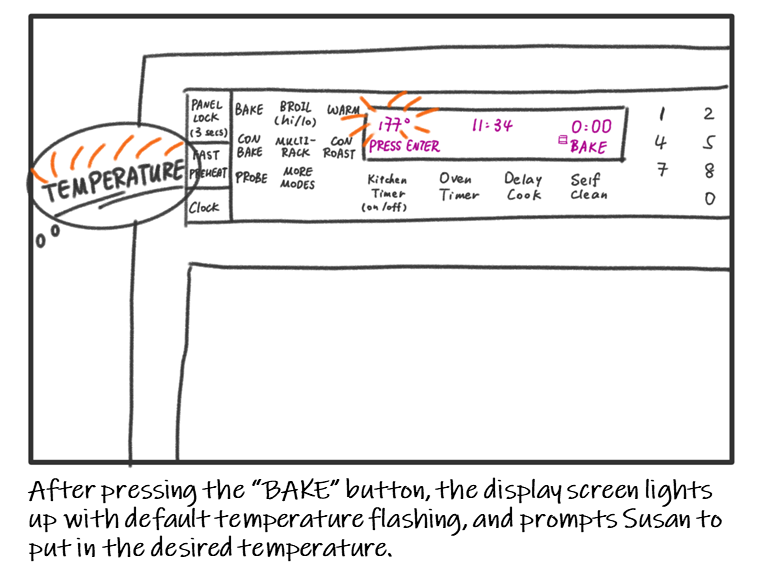 PANEL
LOCK
(3 secs)
FAST
PREHEAT
Clock
TEMPERATURE
BAKE
BROIL
(hi/lo)
WARM
CON
BAKE
MULTI-
RACK
CON
ROAST
PROBE
MORE
MODES
177° 11:34 0:00
PRESS ENTER BAKE
Kitchen
Timer
(on/off)
Oven
Timer
Delay
Cook
Self
Clean
1 2
4 5
7 8
0
After pressing the “BAKE” button, the display screen lights
up with default temperature flashing, and prompts Susan to
put in the desired temperature.